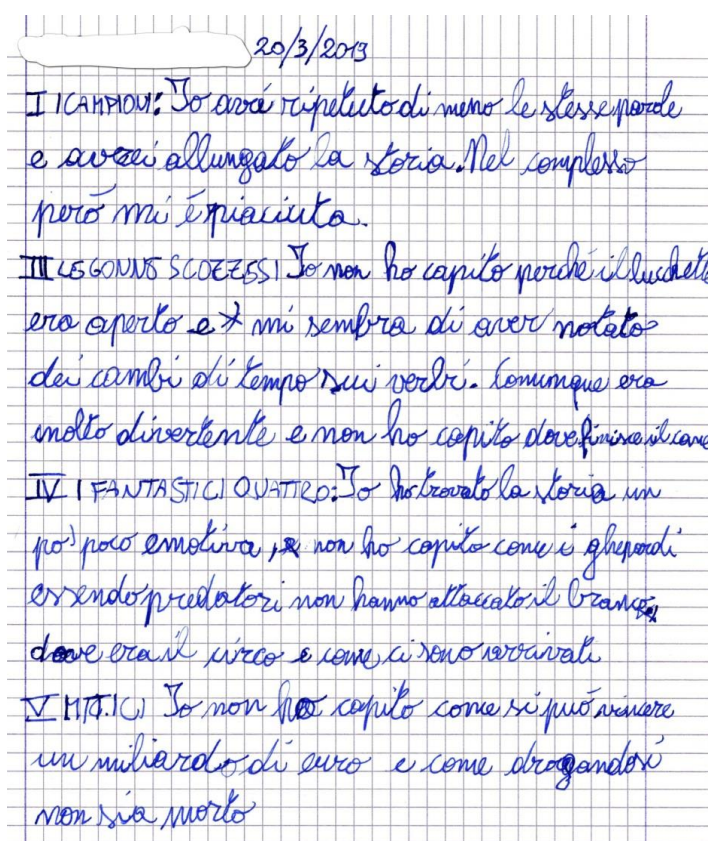 20/3/2019
I I CAMPIONI: Io avrei ripetuto di meno le stesse parole
e avrei allungato la storia. Nel complesso
però mi é piaciuta.
III LE GONNE SCOZZESI Io non ho capito perché il lucchetto
era aperto e mi sembra di aver notato
dei cambi di tempo sui verbi. Comunque era
molto divertente e non ho capito dove finisce il cane
IV I FANTASTICI QUATTRO: Io ho trovato la storia un
po' poco emotiva, non ho capito come i ghepardi
essendo predatori non hanno attaccato il branco,
dove era il circo e come ci sono arrivati
V MITICI Io non ho capito come si puó vincere
un miliardo di euro e come drogandosi
non sia morto